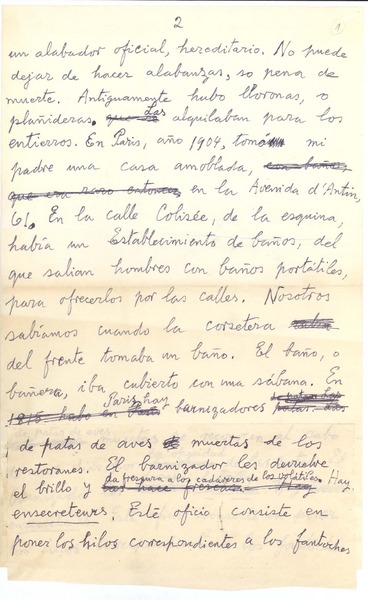 2
1
un alabador oficial, hereditario. No puede
dejar de hacer alabanzas, so pena de
muerte. Antiguamente hubo lloronas, o
plañideras. que las alquilaban para los
entierros. En París, año 1904, tomó mi
padre una casa amoblada, con baños
que era raro entonces en la Avenida d'Antin,
61. En la calle Colisée, de la esquina,
había un Establecimiento de baños, del
que salían hombres con baños portátiles,
para ofrecerlos por las calles. Nosotros
sabíamos cuando la corsetera
del frente tomaba un baño. El baño, o
bañera, iba cubierto con una sábana. En
París, hay
1815 hubo en barnizadores
de patas de aves muertas de los
restoranes. El barnizador les devuelve
da frescura a los cadáveres de los volátiles.
el brillo y las hace frescas. Hay Hay,
ensecreteurs. Este oficio consiste en
poner los hilos correspondientes a los fantoches